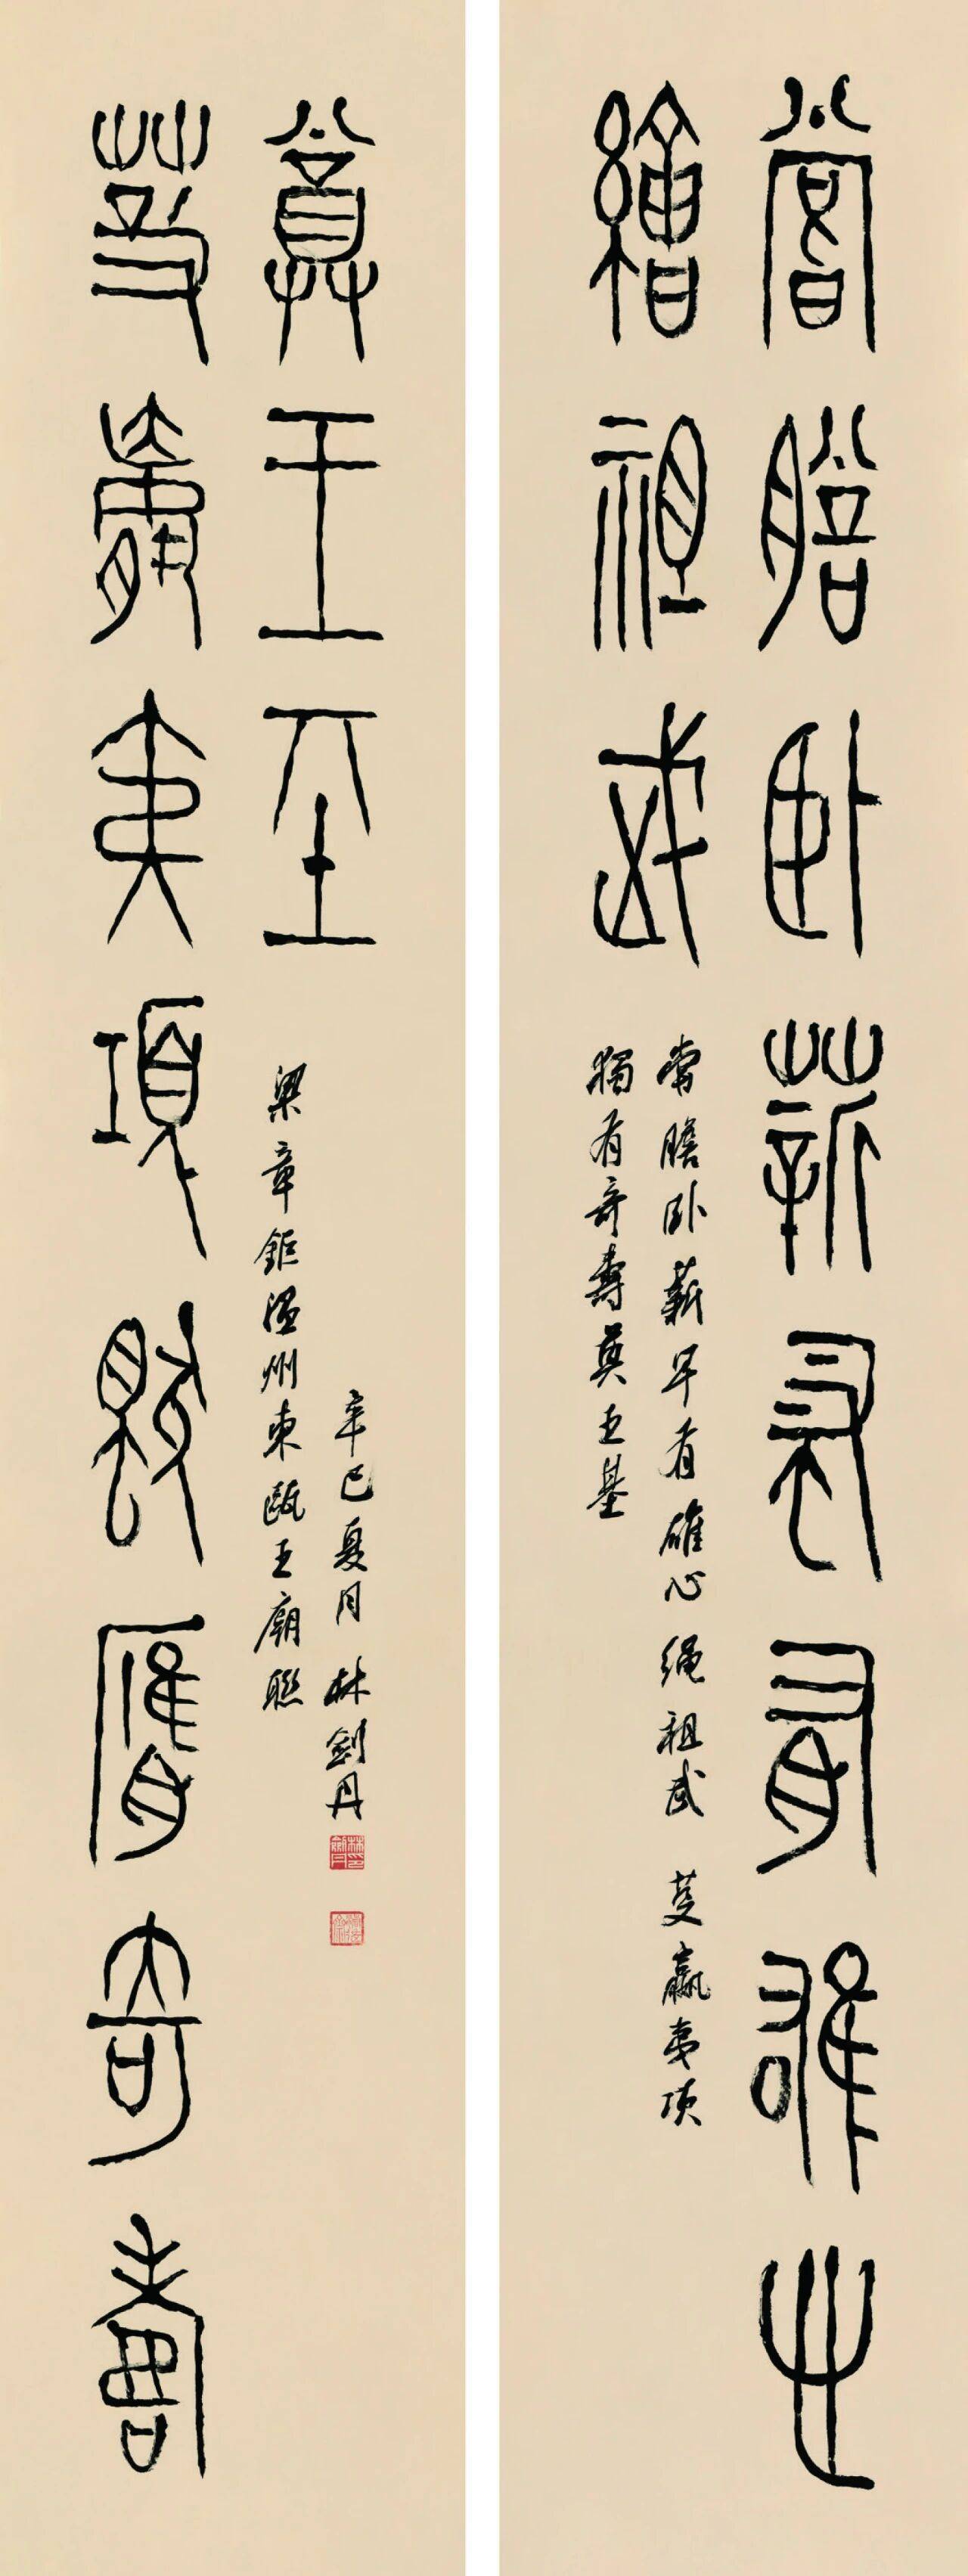 嘗膽臥薪早有雄心
繩祖武
嘗膽卧薪早有雄心繩祖武 芟嬴夷項
獨有奇壽奠王基
芟嬴夷項獨膺奇壽
奠王基
梁章鉅温州東甌王廟聯
辛巳夏月 林劍丹